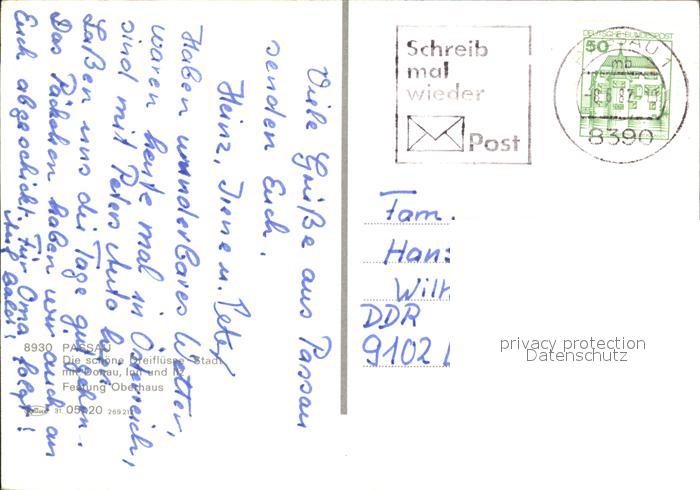 Viele Grüße aus Passau
senden Euch.
Heinz, Irene u. Peter
Haben wunderbares Wetter,
waren heute mal in Österreich,
sind mit Peters Auto hin.
Laßen uns die Tage gutgehen.
Das Päckchen haben wir auch an
Euch abgeschickt. Für Oma folgt!
Auf bald!
8930 PASSAU
Die schöne Dreiflüsse-Stadt
mit Donau, Inn und Ilz
Festung Oberhaus
31.05120
Schreib
mal
wieder
Post
DEUTSCHE BUNDESPOST
50
PASSAU 1
mb
8390
Fam.
Han
Wilh
DDR
9102
privacy protection
Datenschutz